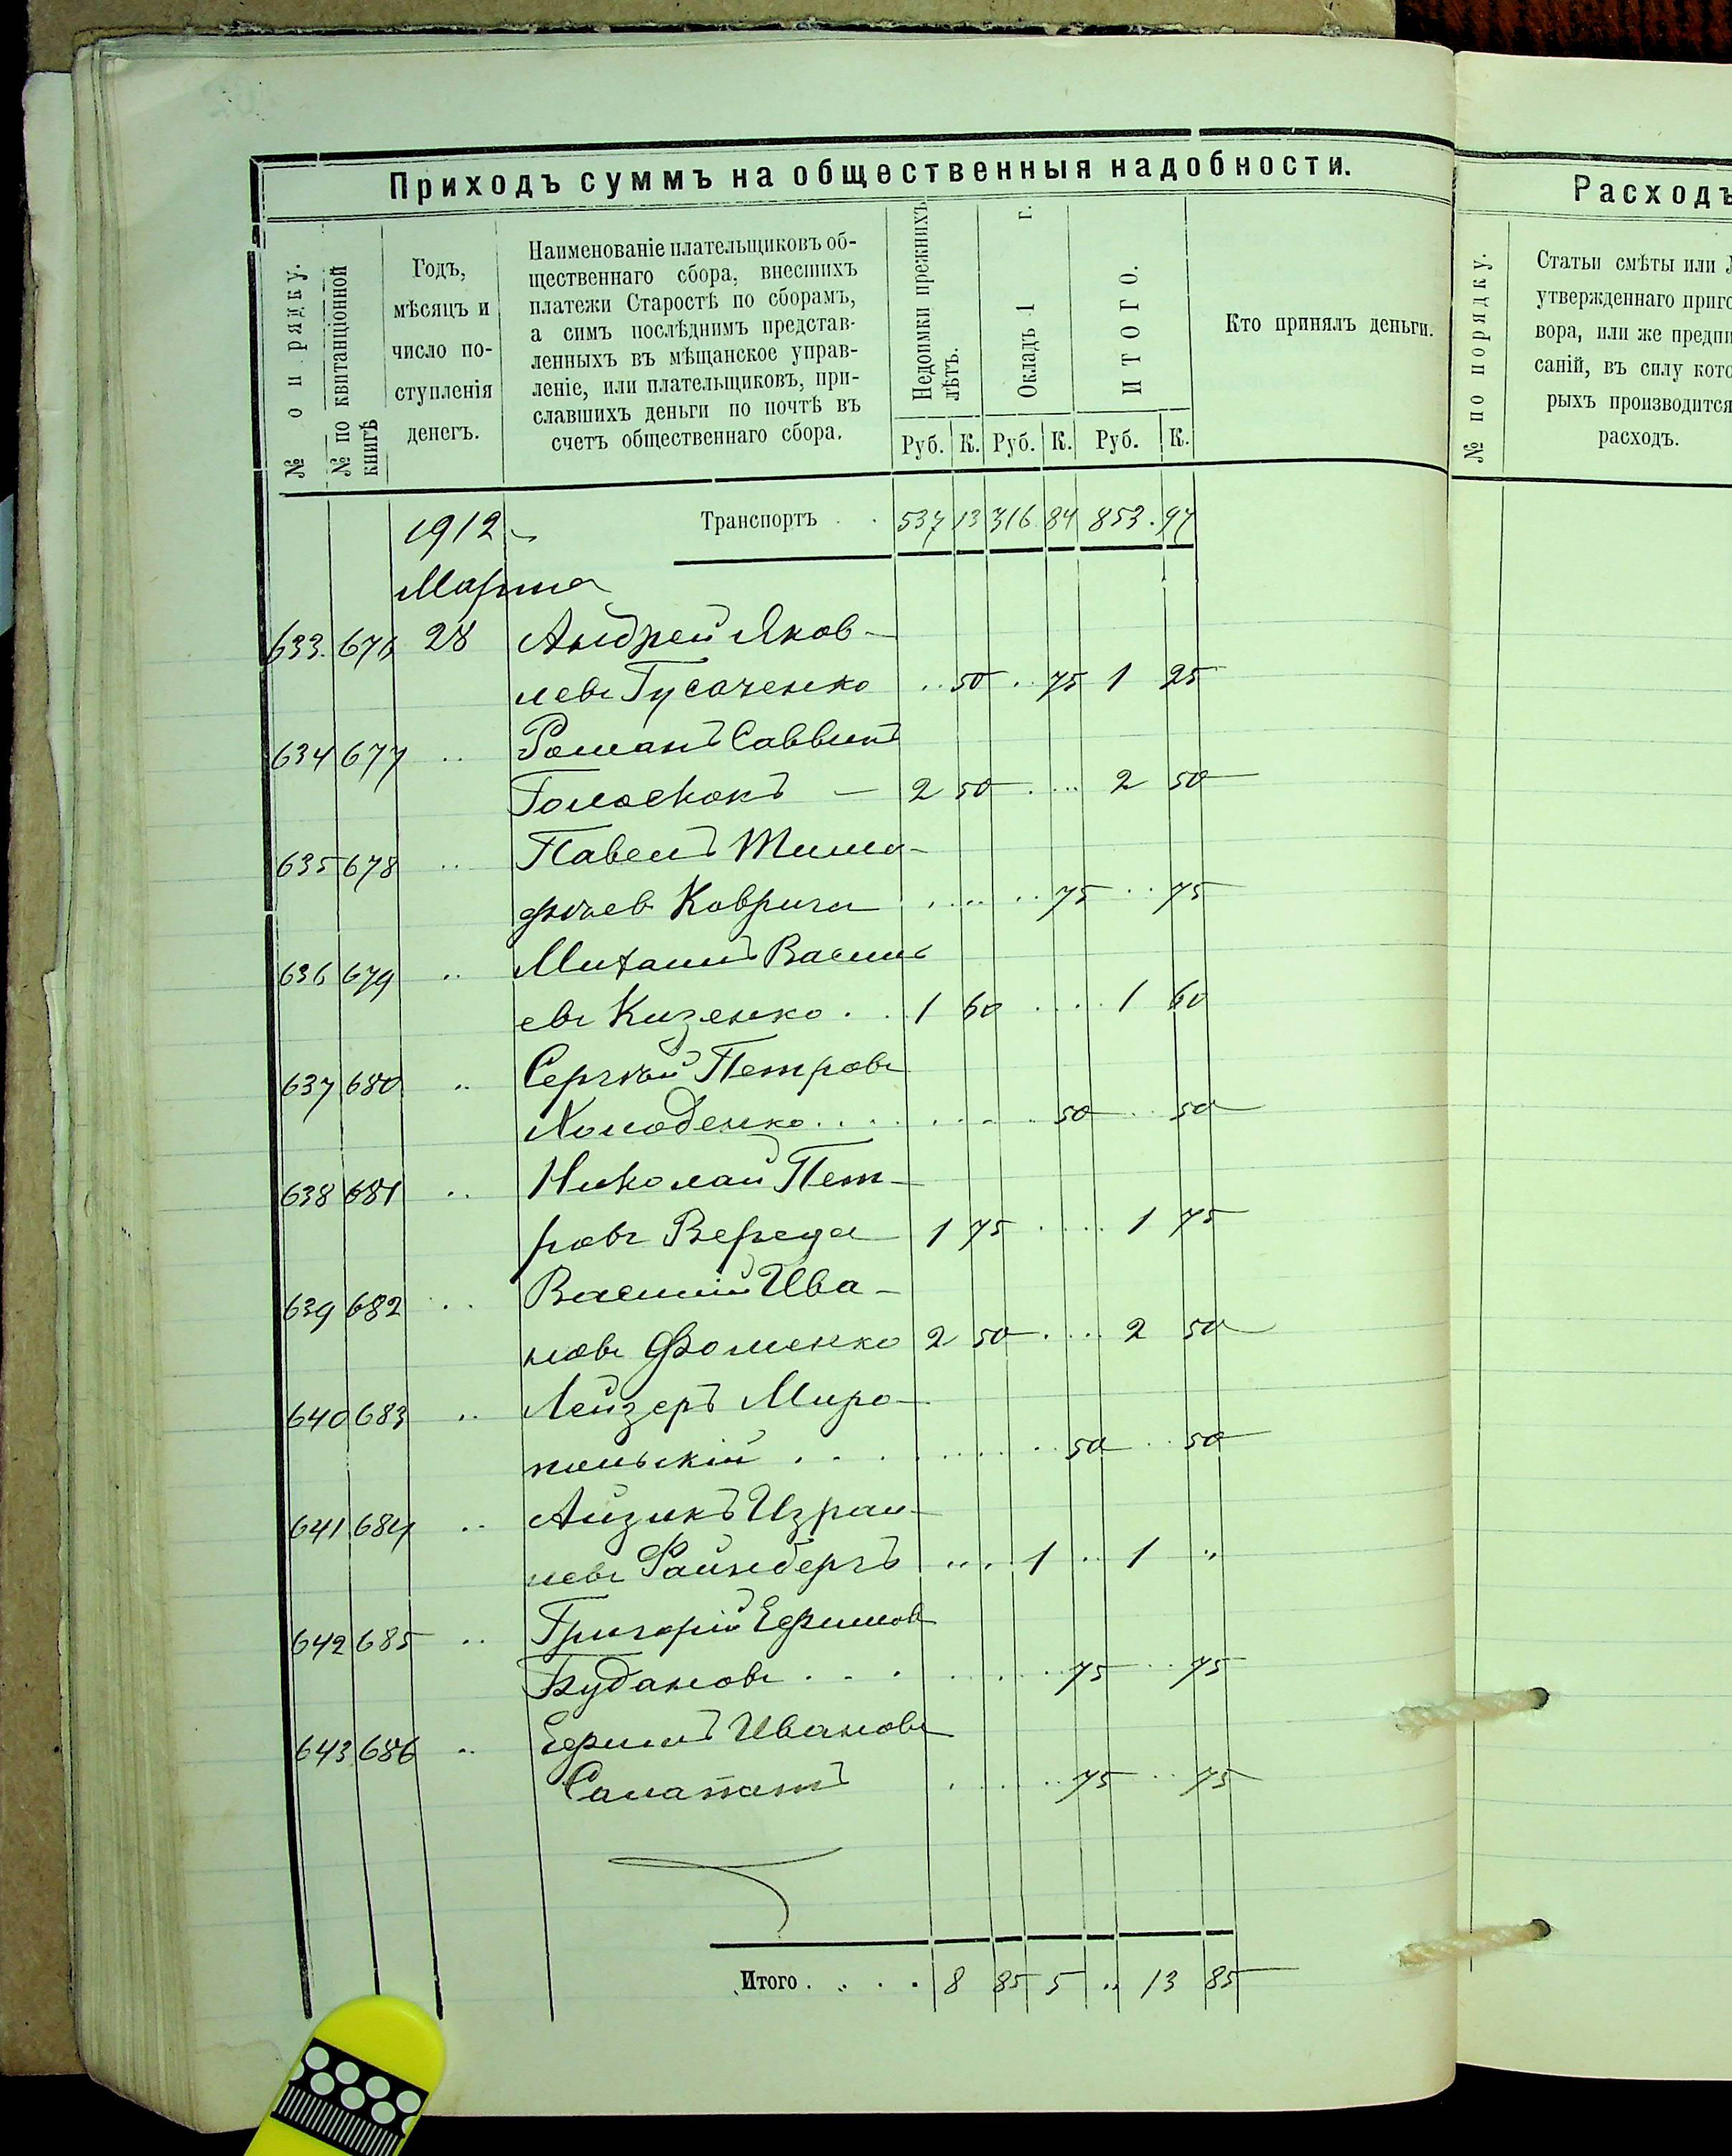 Приходъ суммъ на общественныя надобности.
№ по рядку.
№ по квитанціонной книгѣ
Годъ,
мѣсяцъ и
число по-
ступленія
денегъ.
Наименованіе плательщиковъ об-
щественнаго сбора, внесшихъ
платежи Старостѣ по сборамъ,
а симъ послѣднимъ представ-
ленныхъ въ мѣщанское управ-
леніе, или плательщиковъ, при-
славшихъ деньги по почтѣ въ
счетъ общественнаго сбора.
Недоимки прежнихъ лѣтъ.
Окладъ 1 г.
ИТОГО.
Кто принялъ деньги.
Руб. К. Руб. К. Руб. К.
1912 Транспортъ . . 537 13 316 84 853 . 97
Марта
633. 676 28 Андрей Яков-
левъ Гусаченко .. 50 .. 75 1 25
634 677 .. Романъ Саввинъ
Голоскокъ — 2 50 .... 2 50
635 678 .. Павелъ Тимо-
фѣев Коврига ..... 75 .. 75
636 679 .. Михаилъ Василь
евъ Кизенко . . 1 60 .... 1 60
637 680 .. Сергѣй Петровъ
Холоденко ........ 50 .. 50
638 681 .. Николай Пет-
ровъ Вереда 1 75 .... 1 75
639 682 .. Василій Ива-
новъ Фоменко 2 50 .... 2 50
640 683 .. Лейзеръ Миро-
польскій ........ 50 .. 50
641 684 .. Айзикъ Изра-
левъ Файнбергъ .... 1 .. 1 "
642 685 .. Григорій Ефимов
Будановъ ........ 75 .. 75
643 686 .. Ефимъ Ивановъ
Салатанъ ..... 75 .. 75
Итого . . . . 8 85 5 .. 13 85
Расходъ
№ по порядку.
Статьи смѣты или
утвержденнаго приго
вора, или же предпи
саній, въ силу кото
рыхъ производится
расходъ.